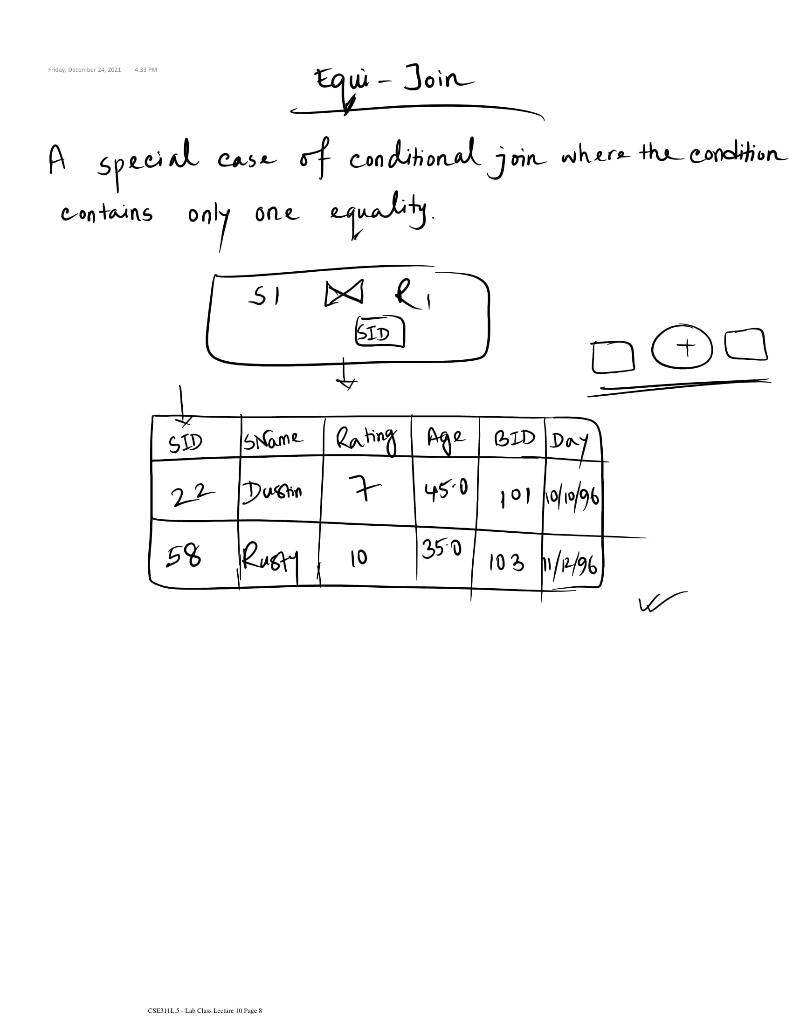 Friday, December 24, 2021 4:33 PM
Equi - Join
A special case of conditional join where the condition
contains only one equality.
S1 ⋈ R1
SID
+
SID SName Rating Age BID Day
22 Dustin 7 45.0 101 10/10/96
58 Rusty 10 35.0 103 11/12/96
CSE311L.5 - Lab Class Lecture 10 Page 8